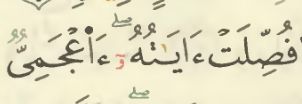 فُصِّلَتْ ءَايَـٰتُهُۥٓ ۖ ءَا۬عْجَمِىٌّ